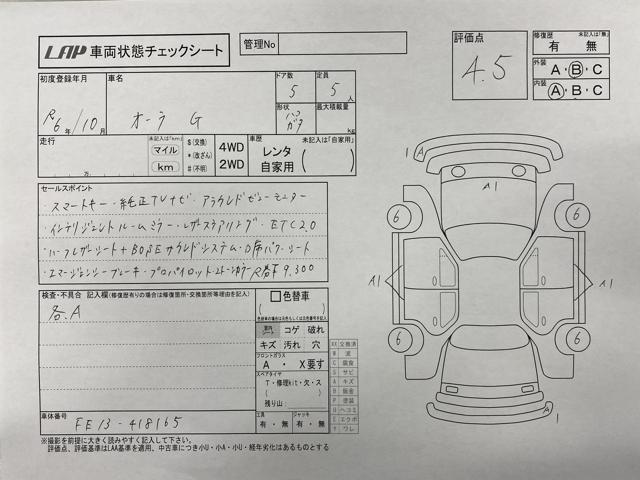 LAP 車両状態チェックシート
管理No
評価点
4.5
修復歴 未記入は「無」
有・無
外装 A・B・C
内装 A・B・C
初度登録年月
R6年/10月
車名
オーラ G
ドア数 5
定員 5人
形状 ハコ ガタ
最大積載量 kg
走行 未記入は「km」
万
マイル
km
$(交換)
*(改ざん)
#(不明)
4WD
2WD
車歴 未記入は「自家用」
レンタ
自家用
セールスポイント
・スマートキー・純正TVナビ・アラウンドビューモニター
・インテリジェントルームミラー・レザーステアリング・ETC2.0
・ハーフレザーシート+BOSEサウンドシステム・D席パワーシート
・エマージェンシーブレーキ・プロパイロット・ステアリングR券¥9,300
検査・不具合 記入欄(修復歴有りの場合は修復箇所・交換箇所等理由を記入)
各.A
色替車
色替車の場合は元色もしくは元色番号を記入
コゲ 破れ
キズ 汚れ 穴
フロントガラス
A ・ X要す
スペアタイヤ
T・修理kit・欠・ス
残り山:
工具
有・無
ジャッキ
有・無
XX 交換済
W 波
C 腐食
S サビ
A キズ
B 鈑金
P 塗装
U ヘコミ
E エクボ
Y ワレ
1 A
A1
6
6
A1
A1
6
6
A 1
車体番号
FE13-418165
※撮影を前提に大きく読みやすく記入して下さい。
評価点、評価基準はLAA基準を適用、中古車につき小U・小A・小U・経年劣化はあるものとする